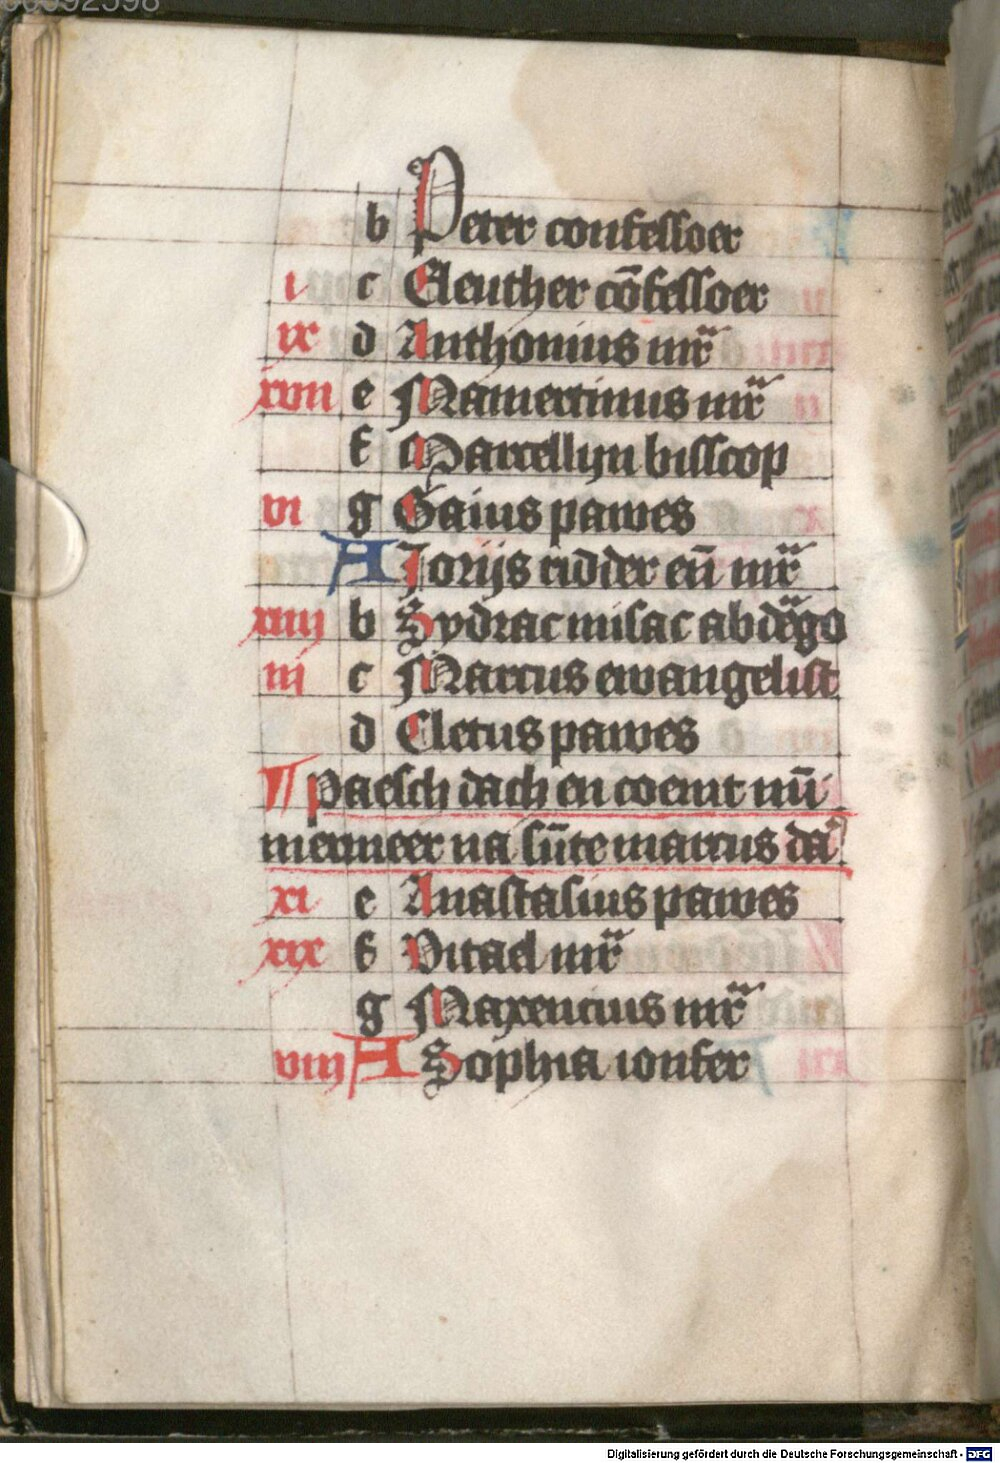 b Peter confessoer
i c Eleuther cōfessoer
ix d Anthonius mr̄
xvii e Mamertinus mr̄
f Marcellyn bisscop
vi g Gaius pawes
A Jorijs ridder eñ mr̄
xiiij b Sydrac misac abdēgo
iij c Marcus ewangelist
d Cletus pawes
¶ Paesch dach en coemt nū
mermeer na sūte marcus da
xi e Anastasius pawes
xix f Vitael mr̄
g Maxencius mr̄
viij A Sophia ionfer
Digitalisierung gefördert durch die Deutsche Forschungsgemeinschaft - DFG